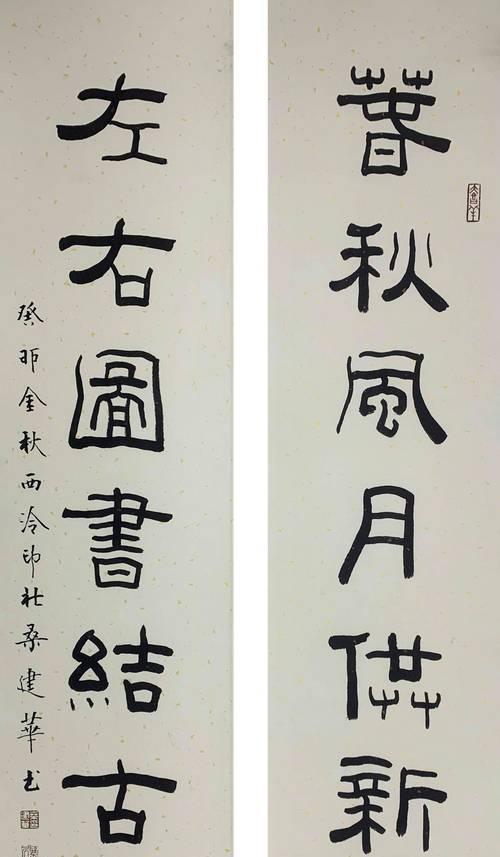 春秋風月供新
左右圖書結古
癸卯金秋西泠印社桑建華书